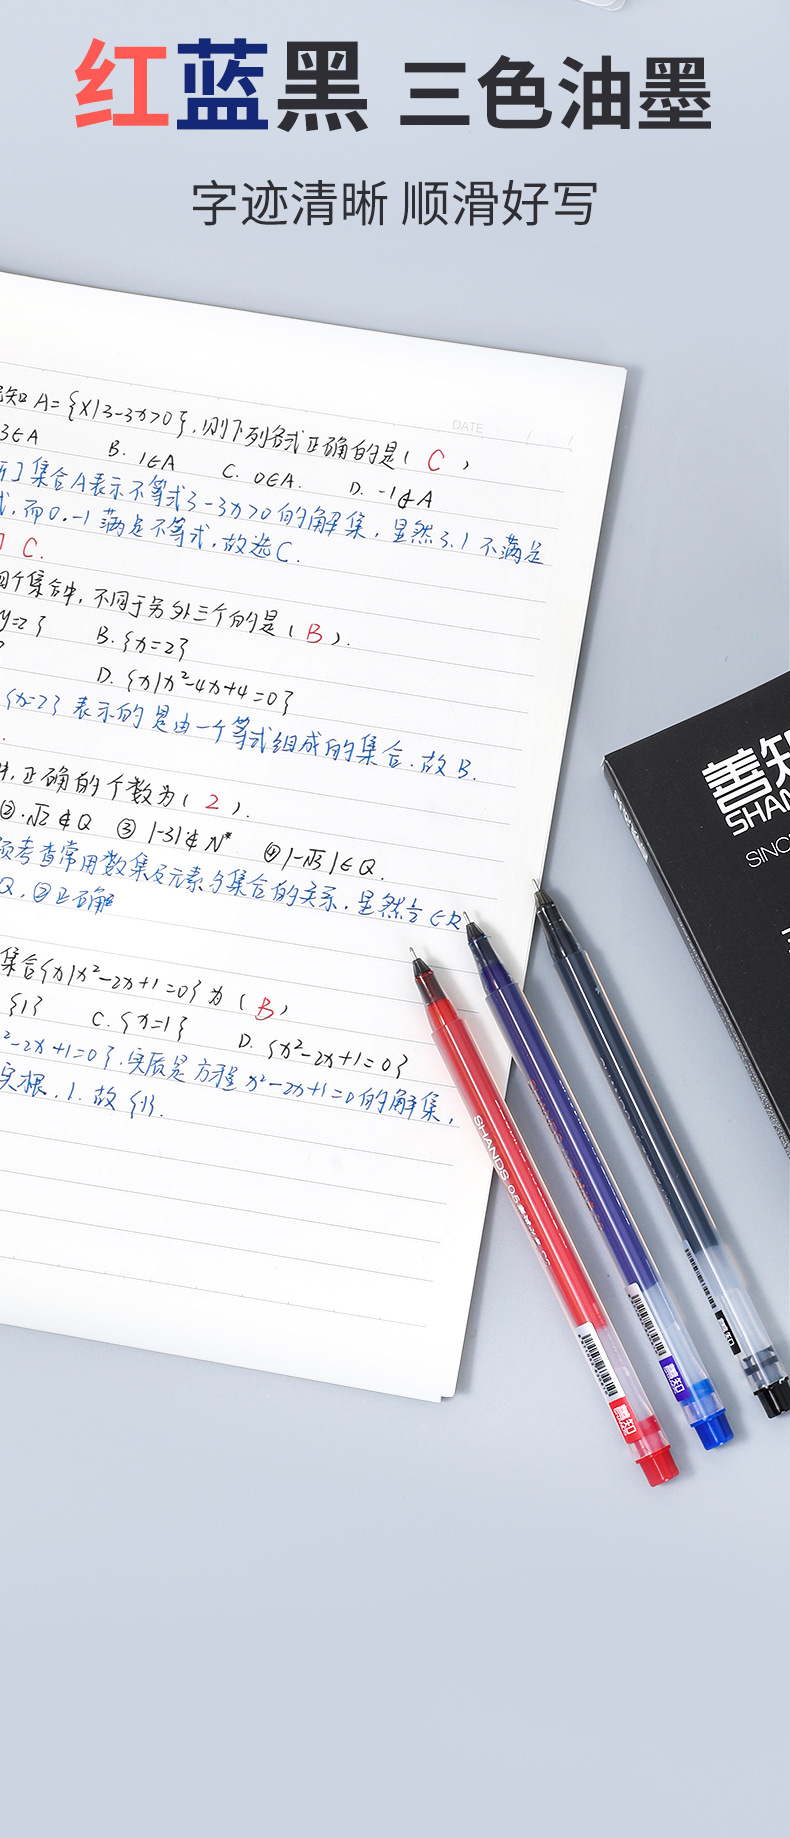 红蓝黑 三色油墨
字迹清晰 顺滑好写
DATE / /
知A={x|3-3x>0},则下列各式正确的是( C )
3∈A B. 1∈A C. 0∈A. D. -1∉A
]集合A表示不等式3-3x>0的解集,显然3.1不满足
式,而0.-1满足不等式,故选C.
C.
四个集合中,不同于另外三个的是( B ).
y=2} B.{x=2}
D.{x|x²-4x+4=0}
{x=2}表示的是由一个等式组成的集合.故B.
正确的个数为( 2 ).
②.√2∉Q ③|-3|∉N* ④|-√3|∈Q.
考查常用数集及元素与集合的关系.显然 ∈R
Q,②正确
集合{x|x²-2x+1=0}为( B )
{1} C.{x=1} D.{x²-2x+1=0}
²-2x+1=0},实质是方程x²-2x+1=0的解集,
实根.1.故{1}.
善知
SHAN
SINC
SHANDS 0.5
善知
善知
善知